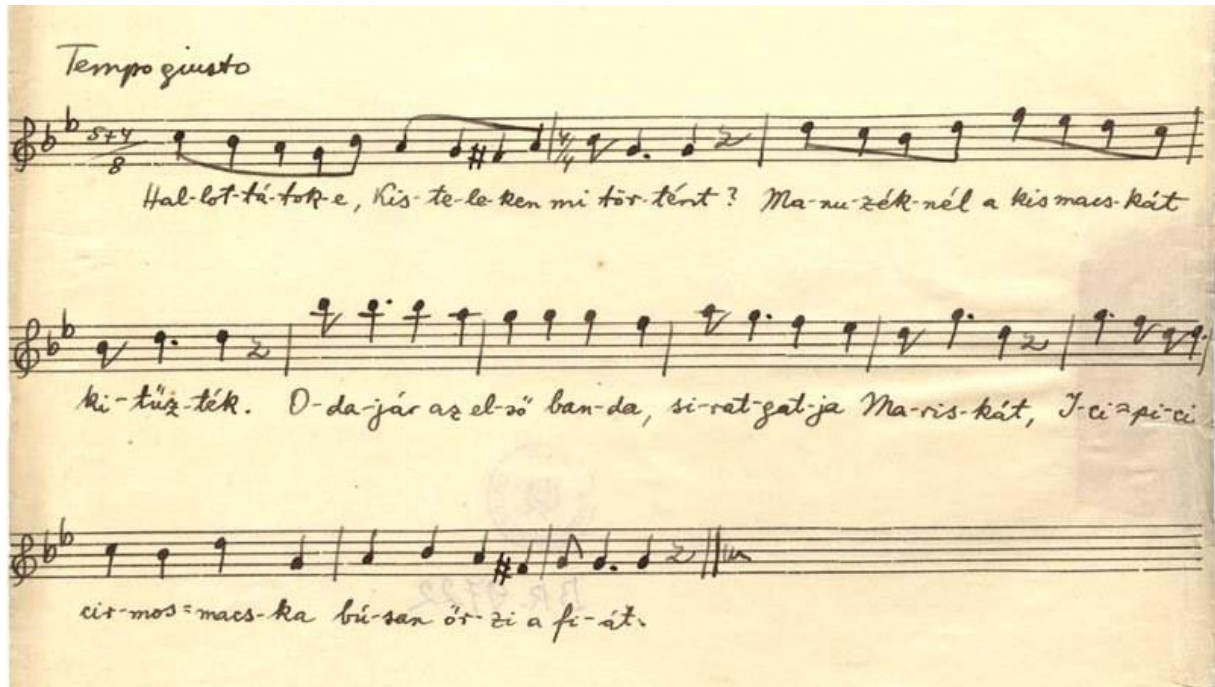 Tempo giusto
5+4
8
4/4
Hal-lot-tá-tok-e, Kis-te-le-ken mi tör-tént? Ma-nu-zék-nél a kis macs-kát
ki-tűz-ték. O-da-jár az el-ső ban-da, si-rat-gat-ja Ma-ris-kát, I-ci=pi-ci
cir-mos=macs-ka bú-san őr-zi a fi-át.